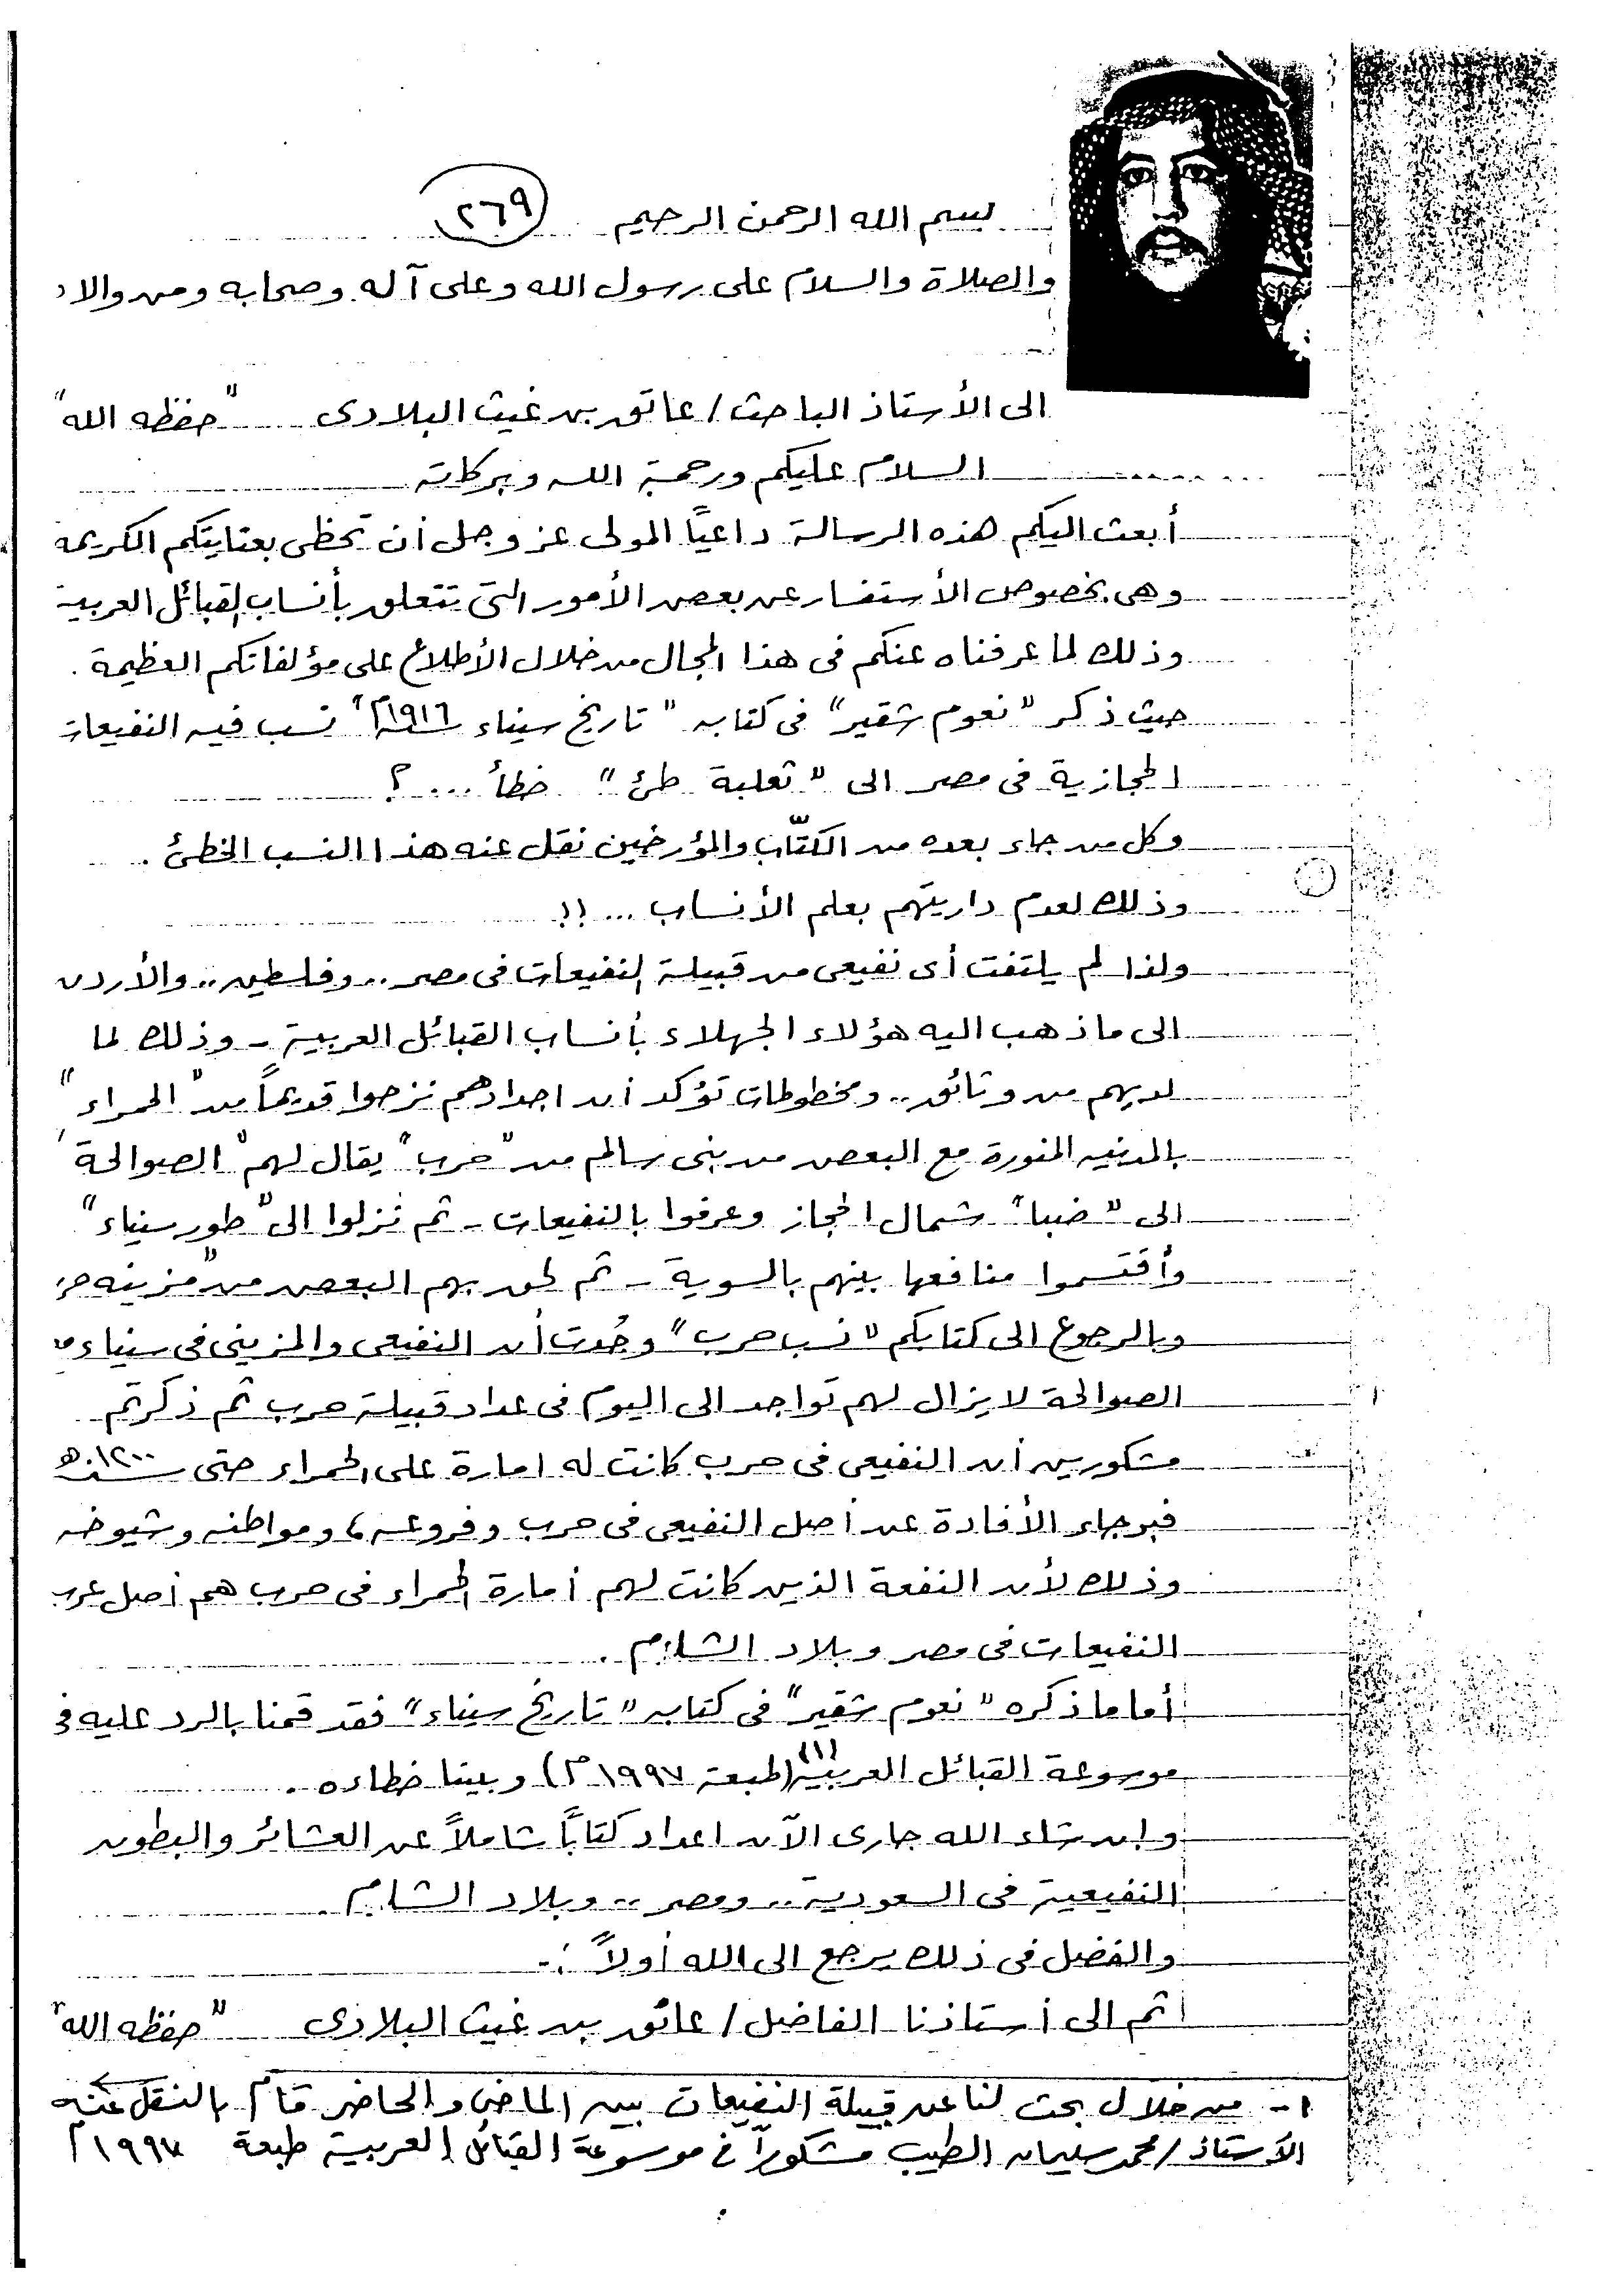 بسم الله الرحمن الرحيم ٢٦٩
والصلاة والسلام على رسول الله وعلى آله وصحابه ومن والاه
الى الأستاذ الباحث / عاتق بن غيث البلادى "حفظه الله"
السلام عليكم ورحمة الله وبركاته
أبعث اليكم هذه الرسالة داعيًا المولى عز وجل أن تحظى بعنايتكم الكريمة
وهى بخصوص الأستفسار عن بعض الأمور التى تتعلق بأنساب القبائل العربية
وذلك لما عرفناه عنكم فى هذا المجال من خلال الأطلاع على مؤلفاتكم العظيمة .
حيث ذكر "نعوم شقير" فى كتابه "تاريخ سيناء ١٩١٦م" نسب فيه النفيعات
الحجازية فى مصر الى "ثعلبة طئ" خطأ ... ؟
وكل من جاء بعده من الكتّاب والمؤرخين نقل عنه هذا النسب الخطئ .
وذلك لعدم داريتهم بعلم الأنساب ... !!
ولذا لم يلتفت أى نفيعى من قبيلة النفيعات فى مصر .. وفلسطين .. والأردن
الى ما ذهب اليه هؤلاء الجهلاء بأنساب القبائل العربية - وذلك لما
لديهم من وثائق .. ومخطوطات تؤكد أن اجدادهم نزحوا قديماً من "الحمراء"
بالمدينه المنورة مع البعض من بنى سالم من "حرب" يقال لهم "الصوالحة"
الى "ضبا" شمال الحجاز وعرفوا بالنفيعات - ثم نزلوا الى "طور سيناء"
وأقتسموا منافعها بينهم بالسوية - ثم لحق بهم البعض من "مزينه
وبالرجوع الى كتابكم "نسب حرب" وجُدت أن النفيعى والمزينى فى سيناء
الصوالحة لا يزال لهم تواجد الى اليوم فى عداد قبيلة حرب ثم ذكرتم
مشكورين أن النفيعى فى حرب كانت له امارة على الحمراء حتى سنة ١٢٠٠هـ
فبرجاء الأفادة عن أصل النفيعى فى حرب وفروعه ، ومواطنه وشيوخه
وذلك لأن النفعة الذين كانت لهم أمارة الحمراء فى حرب هم أصل عرب
النفيعات فى مصر وبلاد الشام .
أما ما ذكره "نعوم شقير" فى كتابه "تاريخ سيناء" فقد قمنا بالرد عليه فى
موسوعة القبائل العربية (١) (طبعة ١٩٩٧م) وبينا خطاءه .
وإن شاء الله جارى الآن اعداد كتاباً شاملاً عن العشائر والبطون
النفيعية فى السعودية .. ومصر .. وبلاد الشام .
والفضل فى ذلك يرجع الى الله أولاً :-
ثم الى أستاذنا الفاضل / عاتق بن غيث البلادى "حفظه الله"
١- من خلال بحث لنا عن قبيلة النفيعات بين الماضى والحاضر قام بالنقل عنه
الأستاذ / محمد سليمان الطيب مشكوراً فى موسوعة القبائل العربية طبعة ١٩٩٧م